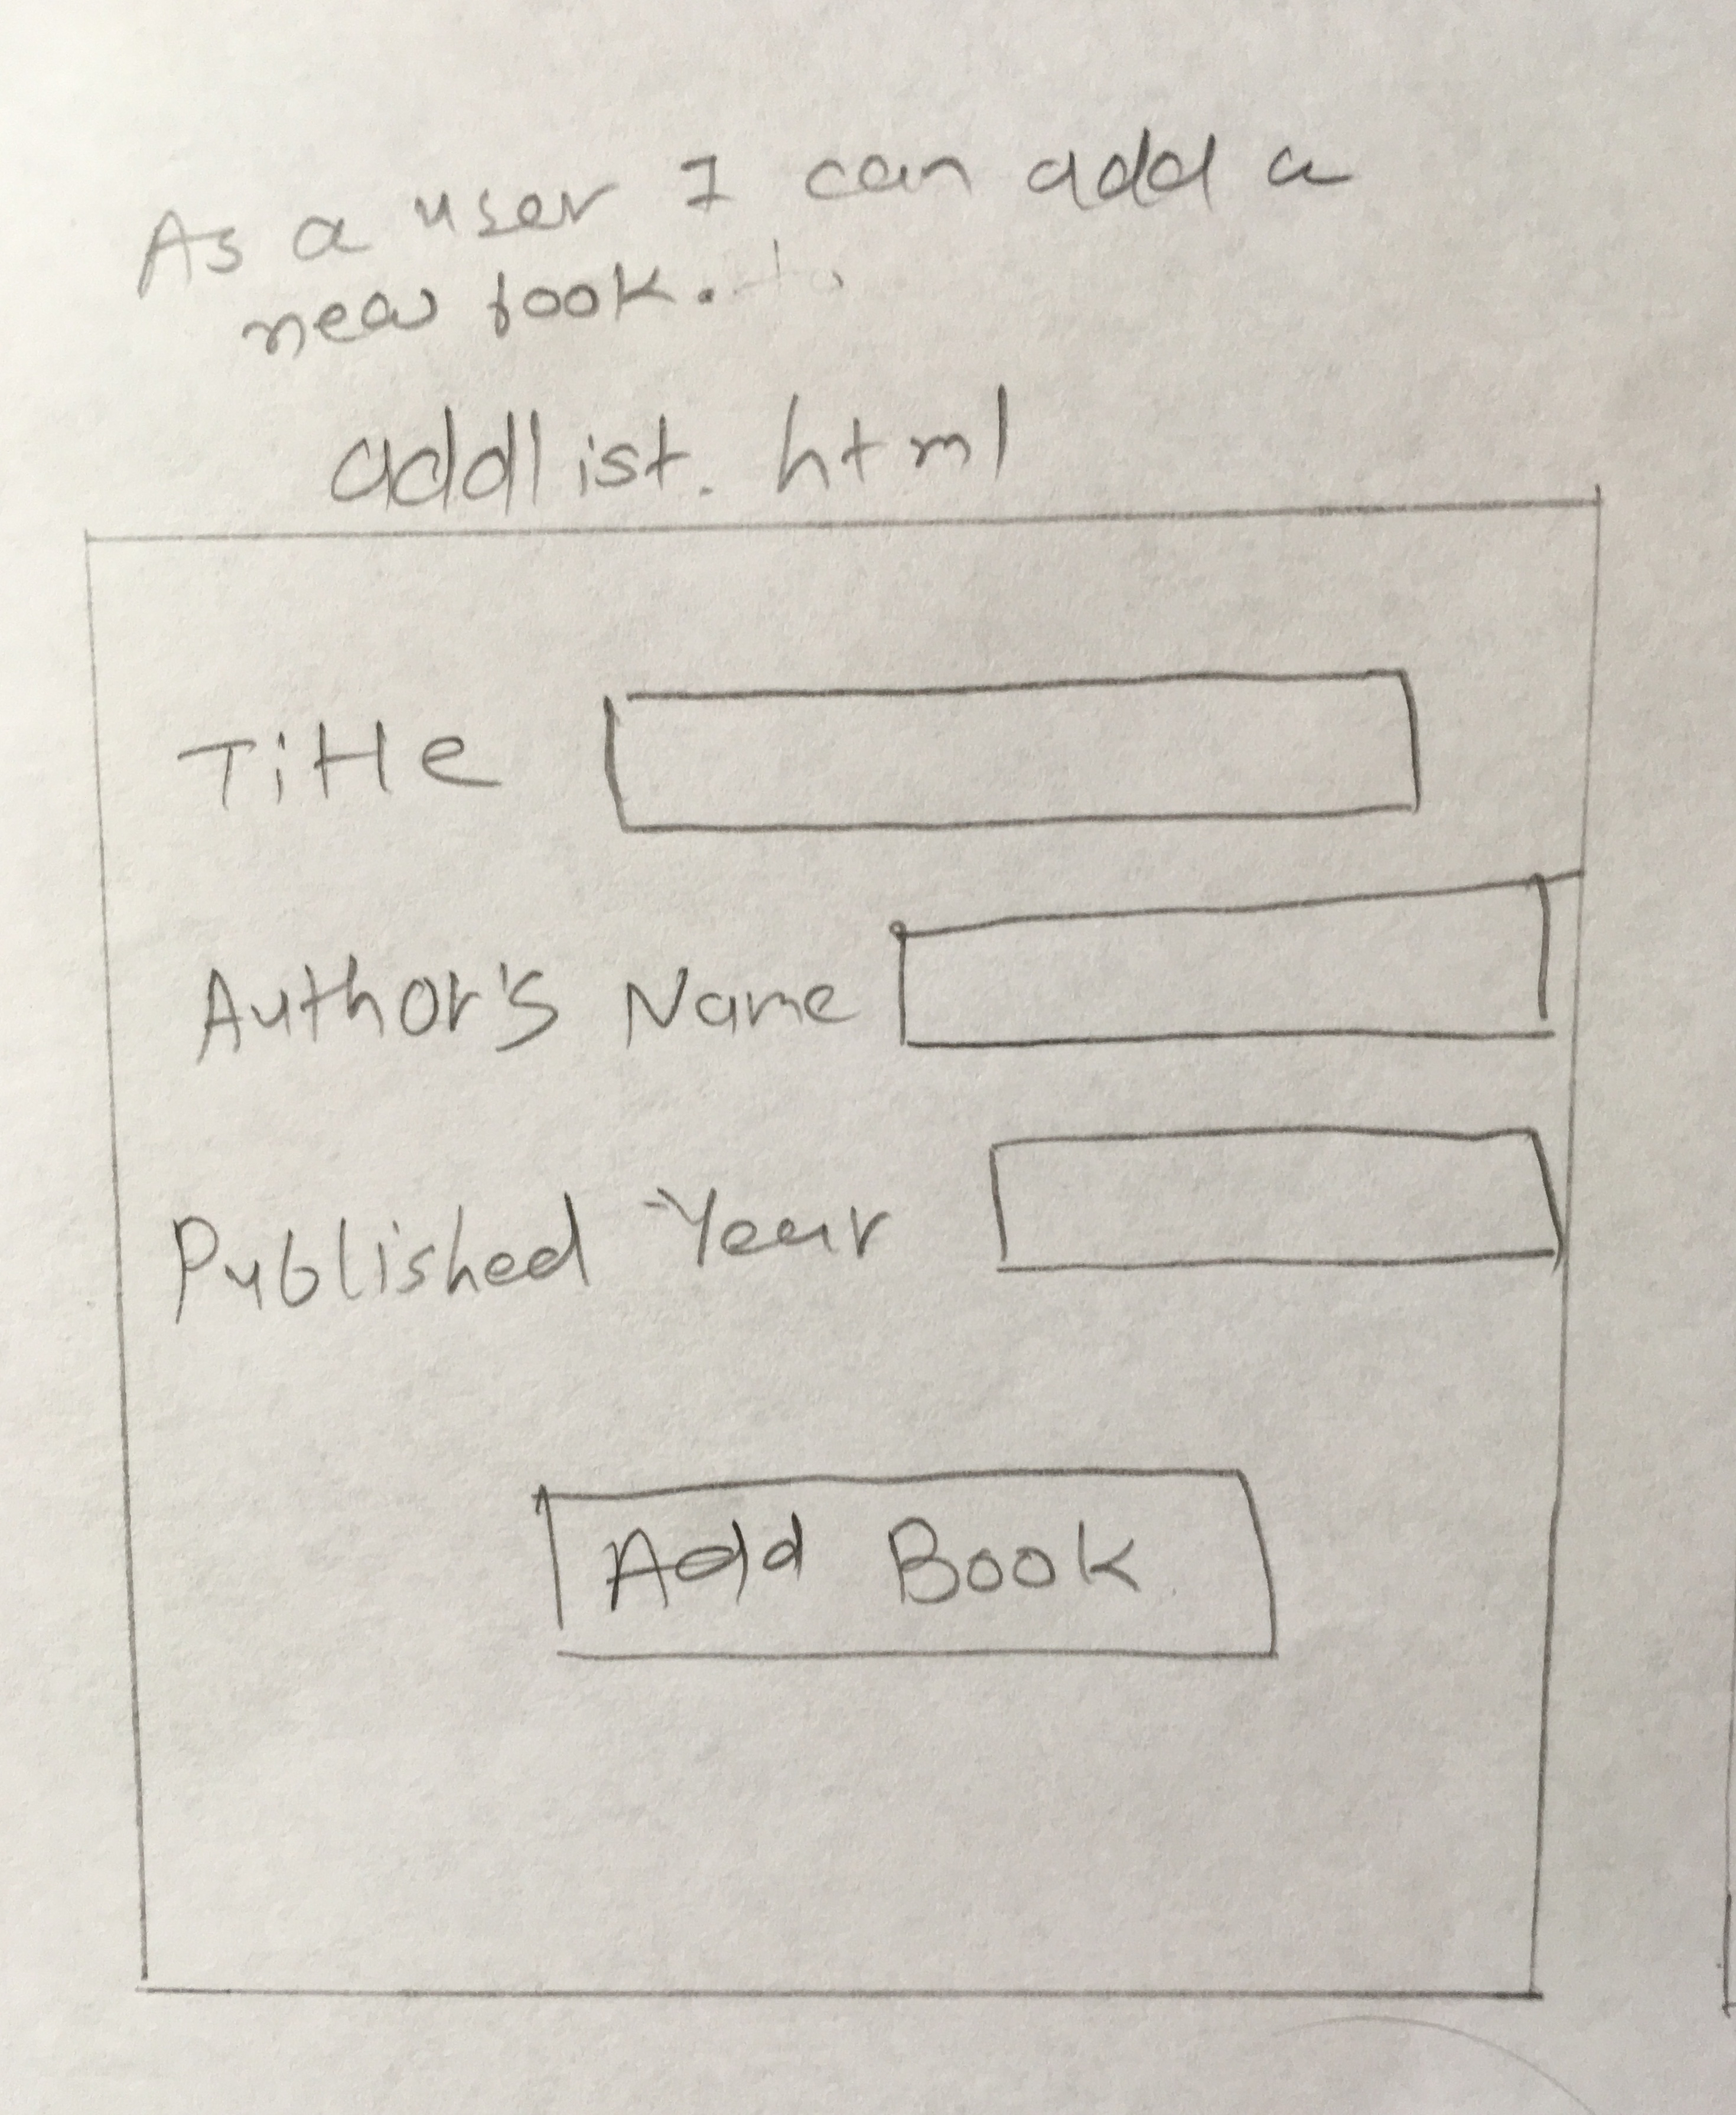 As a user I can add a
new book.
addlist.html
Title
Author's Name
Published Year
Add Book